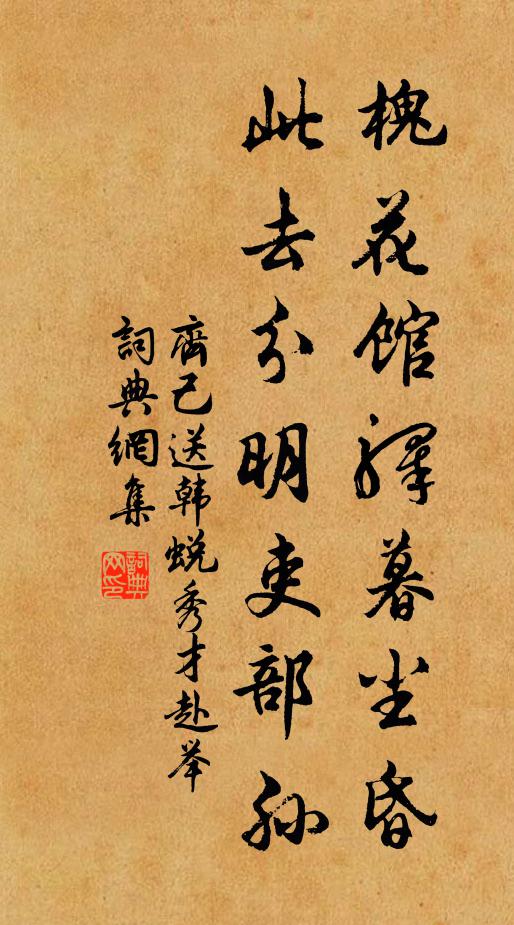 槐花館驛暮塵昏
此去分明吏部孫
齊己送韩蜕秀才赴举
詞典網集
詞典網印